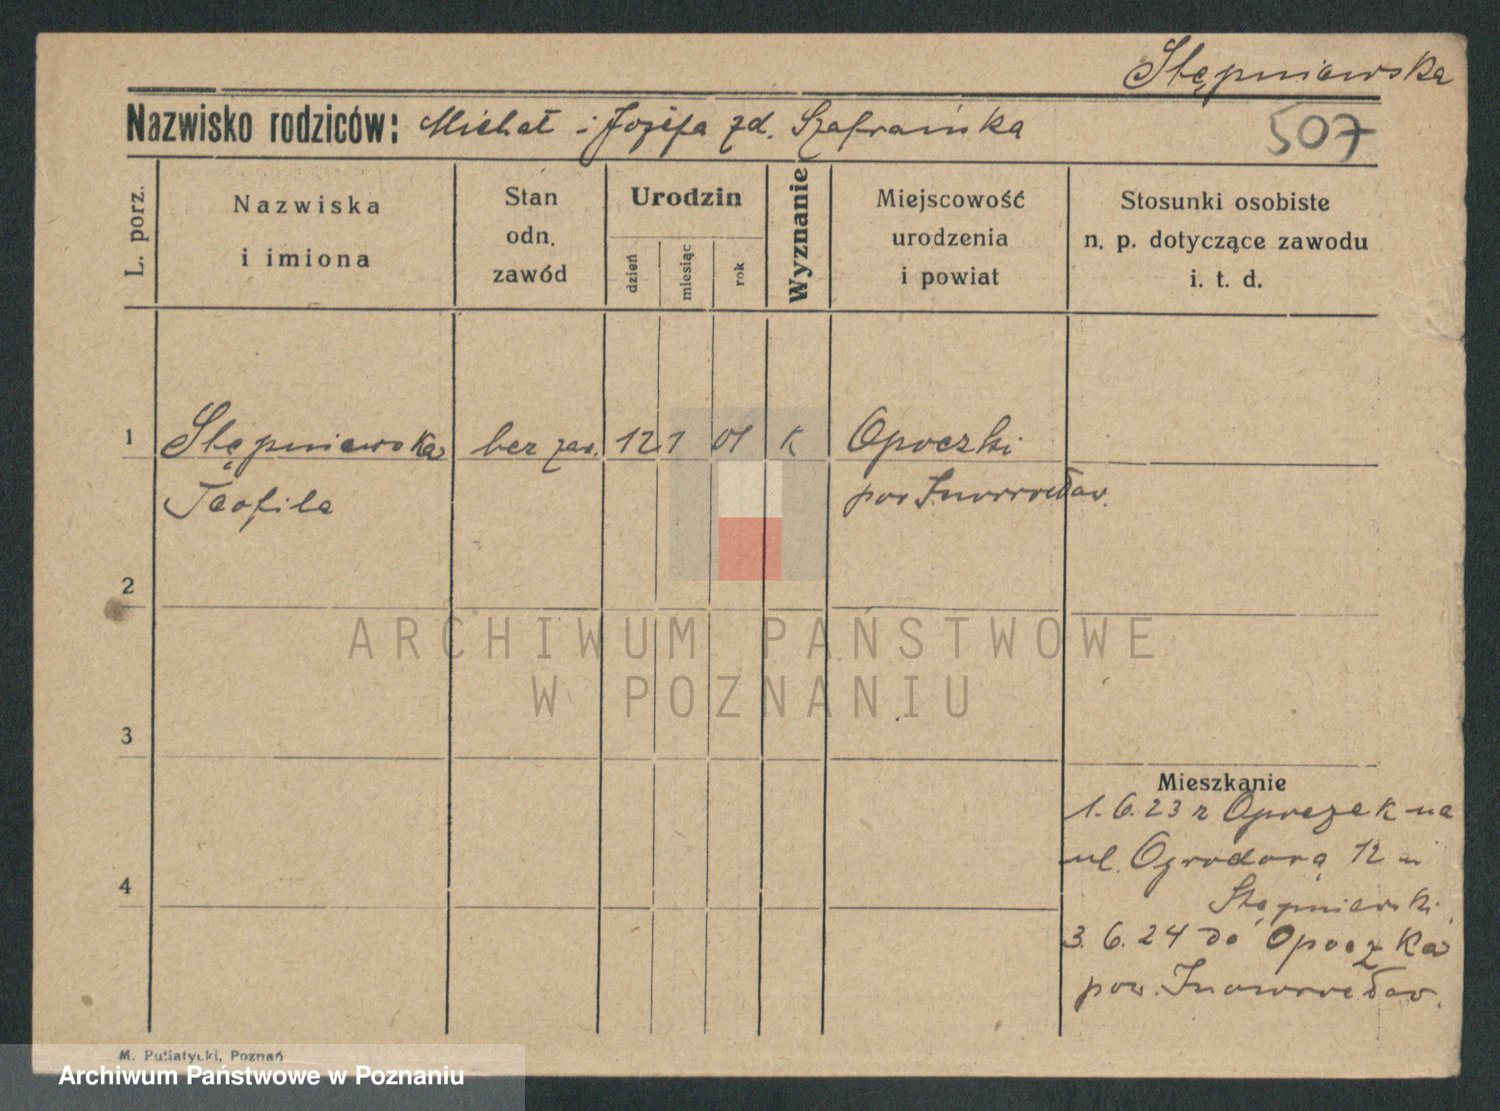 Stępniewska
Nazwisko rodziców: Michał i Józefa zd. Szafrańska
507
L. porz.
Nazwiska
i imiona
Stan
odn.
zawód
Urodzin
dzień
miesiąc
rok
Wyznanie
Miejscowość
urodzenia
i powiat
Stosunki osobiste
n. p. dotyczące zawodu
i. t. d.
1 Stępniewska bez zaw. 12 1 01 K Opoczki
Teofila pow Inowrocław.
2
ARCHIWUM PAŃSTWOWE
W POZNANIU
3
Mieszkanie
1. 6. 23 z Opoczek na
ul. Ogrodową 12 u
4
Stępniewski.
3. 6. 24 do Opoczka
pow. Inowrocław.
M. Putiatycki, Poznań
Archiwum Państwowe w Poznaniu